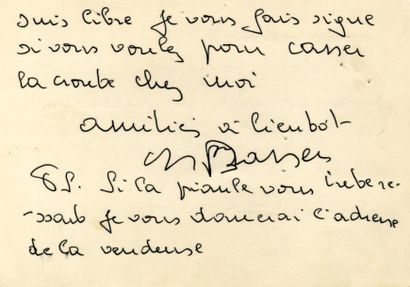 suis libre je vous fais signe
si vous voulez pour casser
la croute chez moi
amitiés à bientot
PS. Si la piaule vous intere-
-ssait je vous donnerai l'adresse
de la vendeuse